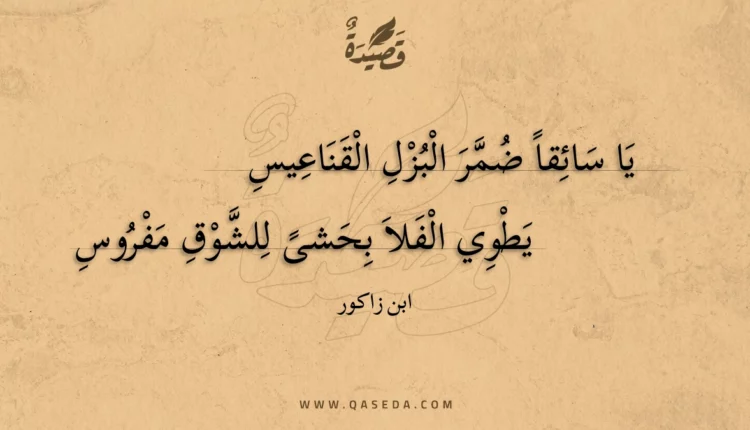 قَصِيْدَةٌ
يَا سَائِقاً ضُمَّرَ الْبُزْلِ الْقَنَاعِيسِ
يَطْوِي الْفَلاَ بِحَشىً لِلشَّوْقِ مَفْرُوسِ
ابن زاكور
WWW.QASEDA.COM